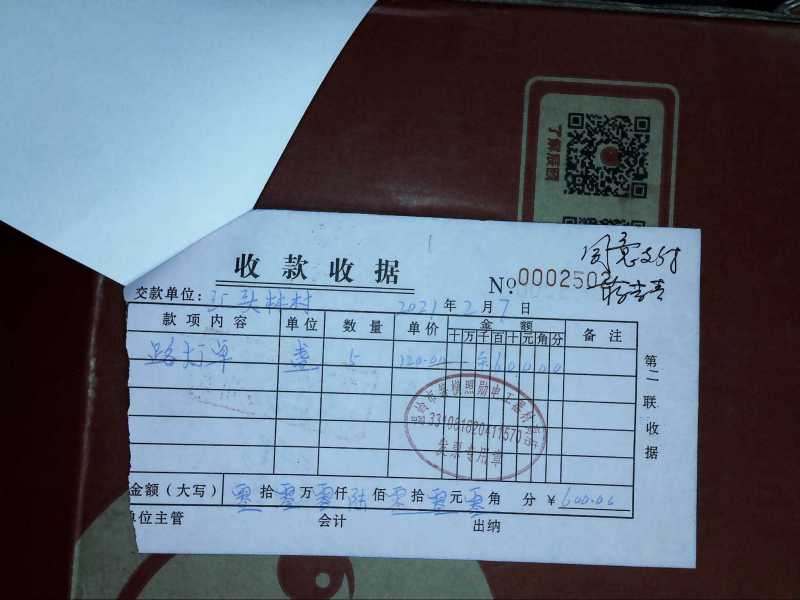 了解版图
同意支付
收款收据
No: 000250
交款单位: 头林村
2021年2月7日
款项内容 单位 数量 单价 金额 备注
十万千百十元角分
路灯单 盏 5 120.00 60000
第二联收据
331081620411570
发票专用章
金额(大写) 零拾零万零仟陆佰零拾零元零角 分 ¥600.00
单位主管 会计 出纳